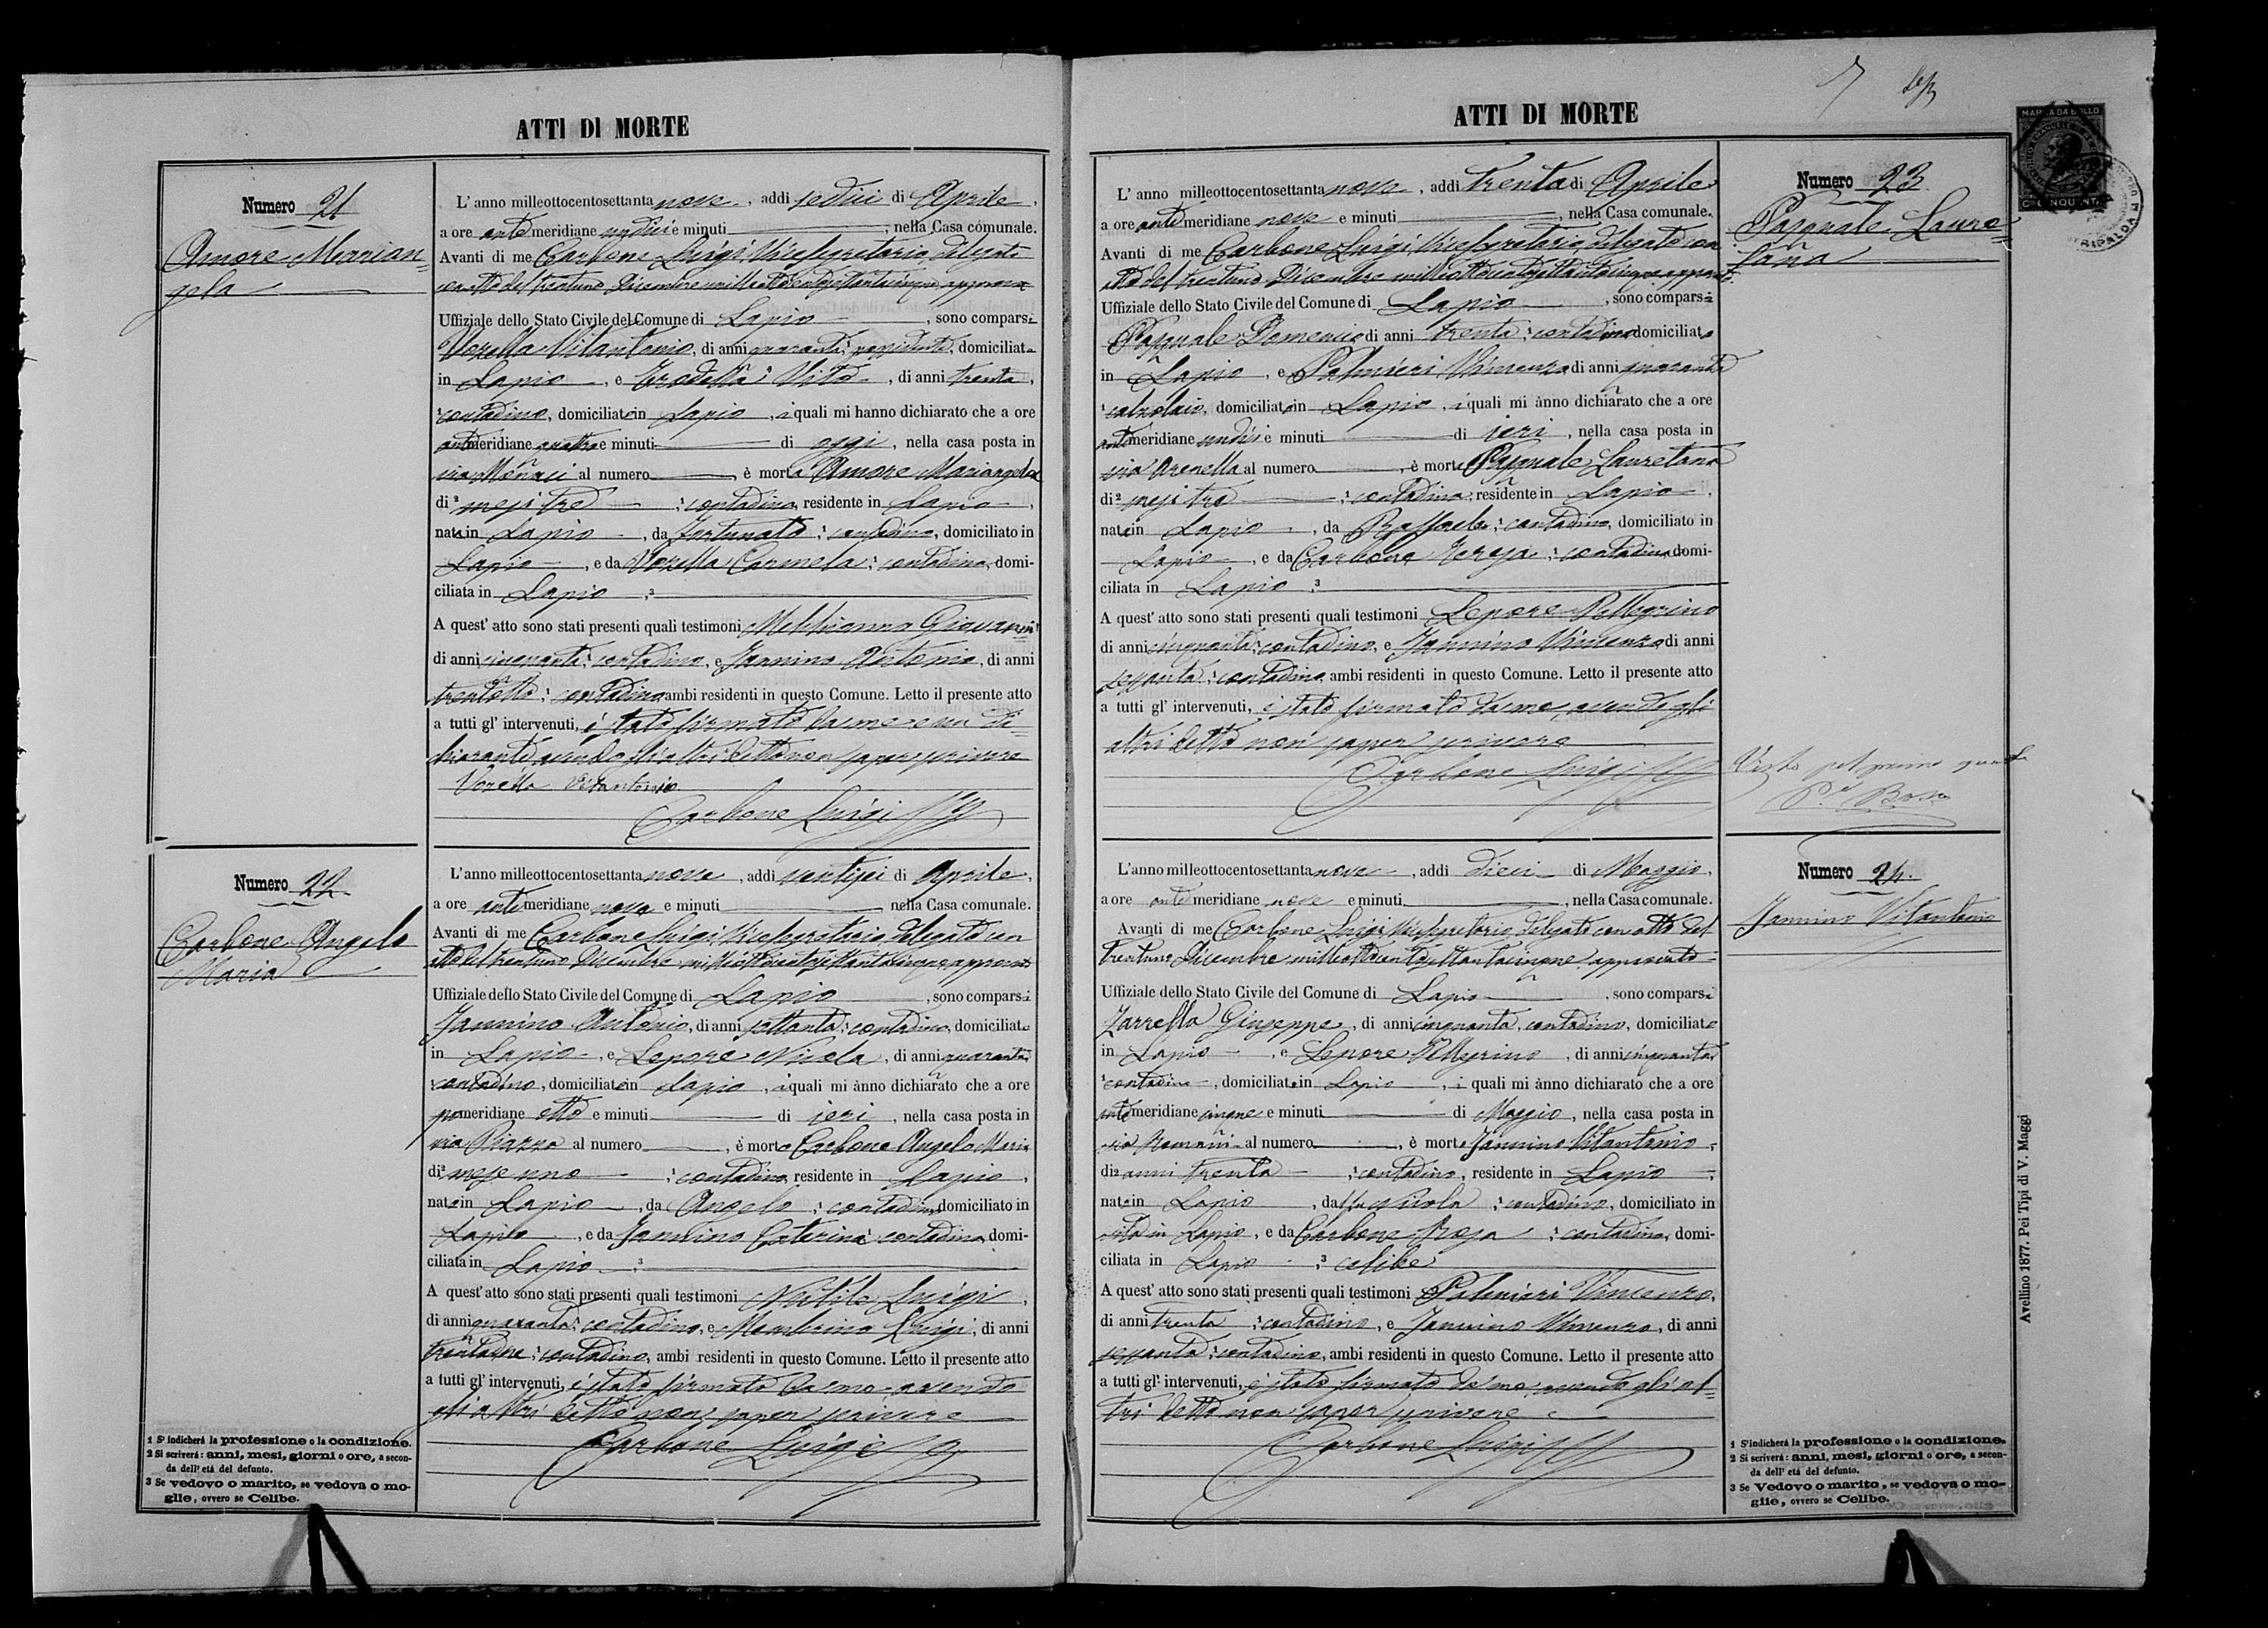 ATTI DI MORTE
Numero 21
Amore Marian=
gela
L'anno milleottocentosettanta nove, addì sedici di Aprile,
a ore antemeridiane undici e minuti, nella Casa comunale.
Avanti di me Carbone Luigi Vicesegretario delegato
con atto del trentuno Dicembre milleottocentosettantacinque approvato
Uffiziale dello Stato Civile del Comune di Lapio, sono comparsi
Vozella Vitantonio, di anni quaranta, possidente, domiciliato
in Lapio, e Vito, di anni trenta,
contadino, domiciliato in Lapio, i quali mi hanno dichiarato che a ore
antemeridiane quattro e minuti di oggi, nella casa posta in
via al numero, è morta Amore Mariangela
di 2 mesi tre, contadina, residente in Lapio,
nata in Lapio, da Fortunato, contadino, domiciliato in
Lapio, e da Vozella Carmela, contadina, domi-
ciliata in Lapio, 3
A quest'atto sono stati presenti quali testimoni Giovanni
di anni cinquanta, contadino, e Jannino Antonio, di anni
trentotto, contadino ambi residenti in questo Comune. Letto il presente atto
a tutti gl'intervenuti, è stato firmato da me e un di=
chiarante avendo gli altri detto non saper scrivere
Vozella Vitantonio
Carbone Luigi
Numero 22
Carbone Angelo
Maria
L'anno milleottocentosettanta nove, addì ventisei di Aprile,
a ore antemeridiane nove e minuti nella Casa comunale.
Avanti di me Carbone Luigi Vicesegretario delegato con
atto del trentuno Dicembre milleottocentosettantacinque approvato
Uffiziale dello Stato Civile del Comune di Lapio, sono comparsi
Jannino Antonio, di anni settanta, contadino, domiciliato
in Lapio, e Lepore Nicola, di anni quaranta
contadino, domiciliato in Lapio, i quali mi ànno dichiarato che a ore
pomeridiane otto e minuti di ieri, nella casa posta in
via Piazza al numero, è morto Carbone Angelo Maria
di 2 mese uno, contadino, residente in Lapio,
nato in Lapio, da Angelo, contadino domiciliato in
Lapio, e da Jannino Caterina contadina, domi-
ciliata in Lapio, 3
A quest'atto sono stati presenti quali testimoni Luigi,
di anni quaranta, contadino, e Luigi, di anni
contadino, ambi residenti in questo Comune. Letto il presente atto
a tutti gl'intervenuti, è stato firmato da me avendo
gli altri detto non saper scrivere
Carbone Luigi
1 S'indicherà la professione o la condizione.
2 Si scriverà: anni, mesi, giorni o ore, a secon-
da dell'età del defunto.
3 Se vedovo o marito, se vedova o mo-
glie, ovvero se Celibe.
ATTI DI MORTE
Numero 23
Pasquale Laure=
tana
MARCA DA BOLLO
L'anno milleottocentosettanta nove, addì trenta di Aprile
a ore antemeridiane nove e minuti, nella Casa comunale.
Avanti di me Carbone Luigi Vicesegretario delegato con
atto del trentuno Dicembre milleottocentosettantacinque approvato
Uffiziale dello Stato Civile del Comune di Lapio, sono comparsi
Pasquale Domenico di anni trenta, contadino domiciliato
in Lapio, e Palmieri Vincenzo di anni quaranta
calzolaio, domiciliato in Lapio, i quali mi ànno dichiarato che a ore
antemeridiane undici e minuti di ieri, nella casa posta in
via Arenella al numero, è morta Pasquale Lauretana
di 2 mesi tre, contadina, residente in Lapio,
nata in Lapio, da Raffaele, contadino, domiciliato in
Lapio, e da Carbone Teresa, contadina domi-
ciliata in Lapio, 3
A quest'atto sono stati presenti quali testimoni Lepore Pellegrino
di anni cinquanta, contadino, e Jannino Vincenzo di anni
sessanta, contadino ambi residenti in questo Comune. Letto il presente atto
a tutti gl'intervenuti, è stato firmato da me, avendo gli
altri detto non saper scrivere
Carbone Luigi
Visto pel primo
Numero 24.
Jannino Vitantonio
L'anno milleottocentosettanta nove, addì dieci di Maggio,
a ore antemeridiane nove e minuti, nella Casa comunale.
Avanti di me Carbone Luigi Vicesegretario delegato con atto del
trentuno Dicembre milleottocentosettantacinque approvato
Uffiziale dello Stato Civile del Comune di Lapio, sono comparsi
Zarrella Giuseppe, di anni cinquanta, contadino, domiciliato
in Lapio, e Lepore Pellegrino, di anni cinquanta
contadino, domiciliato in Lapio, i quali mi ànno dichiarato che a ore
antemeridiane cinque e minuti di Maggio, nella casa posta in
via Romani al numero, è morto Jannino Vitantonio,
di 2 anni trenta, contadino, residente in Lapio,
nato in Lapio, da fu Nicola, contadino, domiciliato in
vita in Lapio, e da Carbone Rosa, contadina, domi-
ciliata in Lapio, 3 celibe
A quest'atto sono stati presenti quali testimoni Palmieri Vincenzo,
di anni trenta, contadino, e Jannino Vincenzo, di anni
sessanta, contadino, ambi residenti in questo Comune. Letto il presente atto
a tutti gl'intervenuti, è stato firmato da me avendo gli al=
tri detto non saper scrivere
Carbone Luigi
1 S'indicherà la professione o la condizione.
2 Si scriverà: anni, mesi, giorni o ore, a secon-
da dell'età del defunto.
3 Se Vedovo o marito, se vedova o mo-
glie, ovvero se Celibe.
Avellino 1877. Pei Tipi di V. Maggi